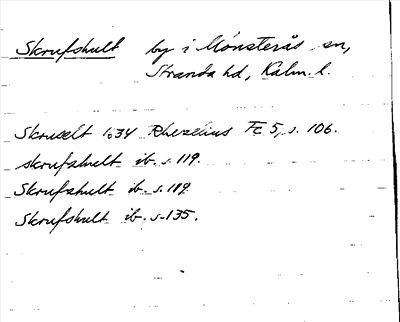 Skrufshult by i Mönsterås sn,
Stranda hd, Kalm. l.
Skruselt 1634 Rhezelius Fc 5, s. 106.
skrufzhult ib. s. 119.
Skrufshult ib. s. 119.
Skrufshult ib. s. 135.